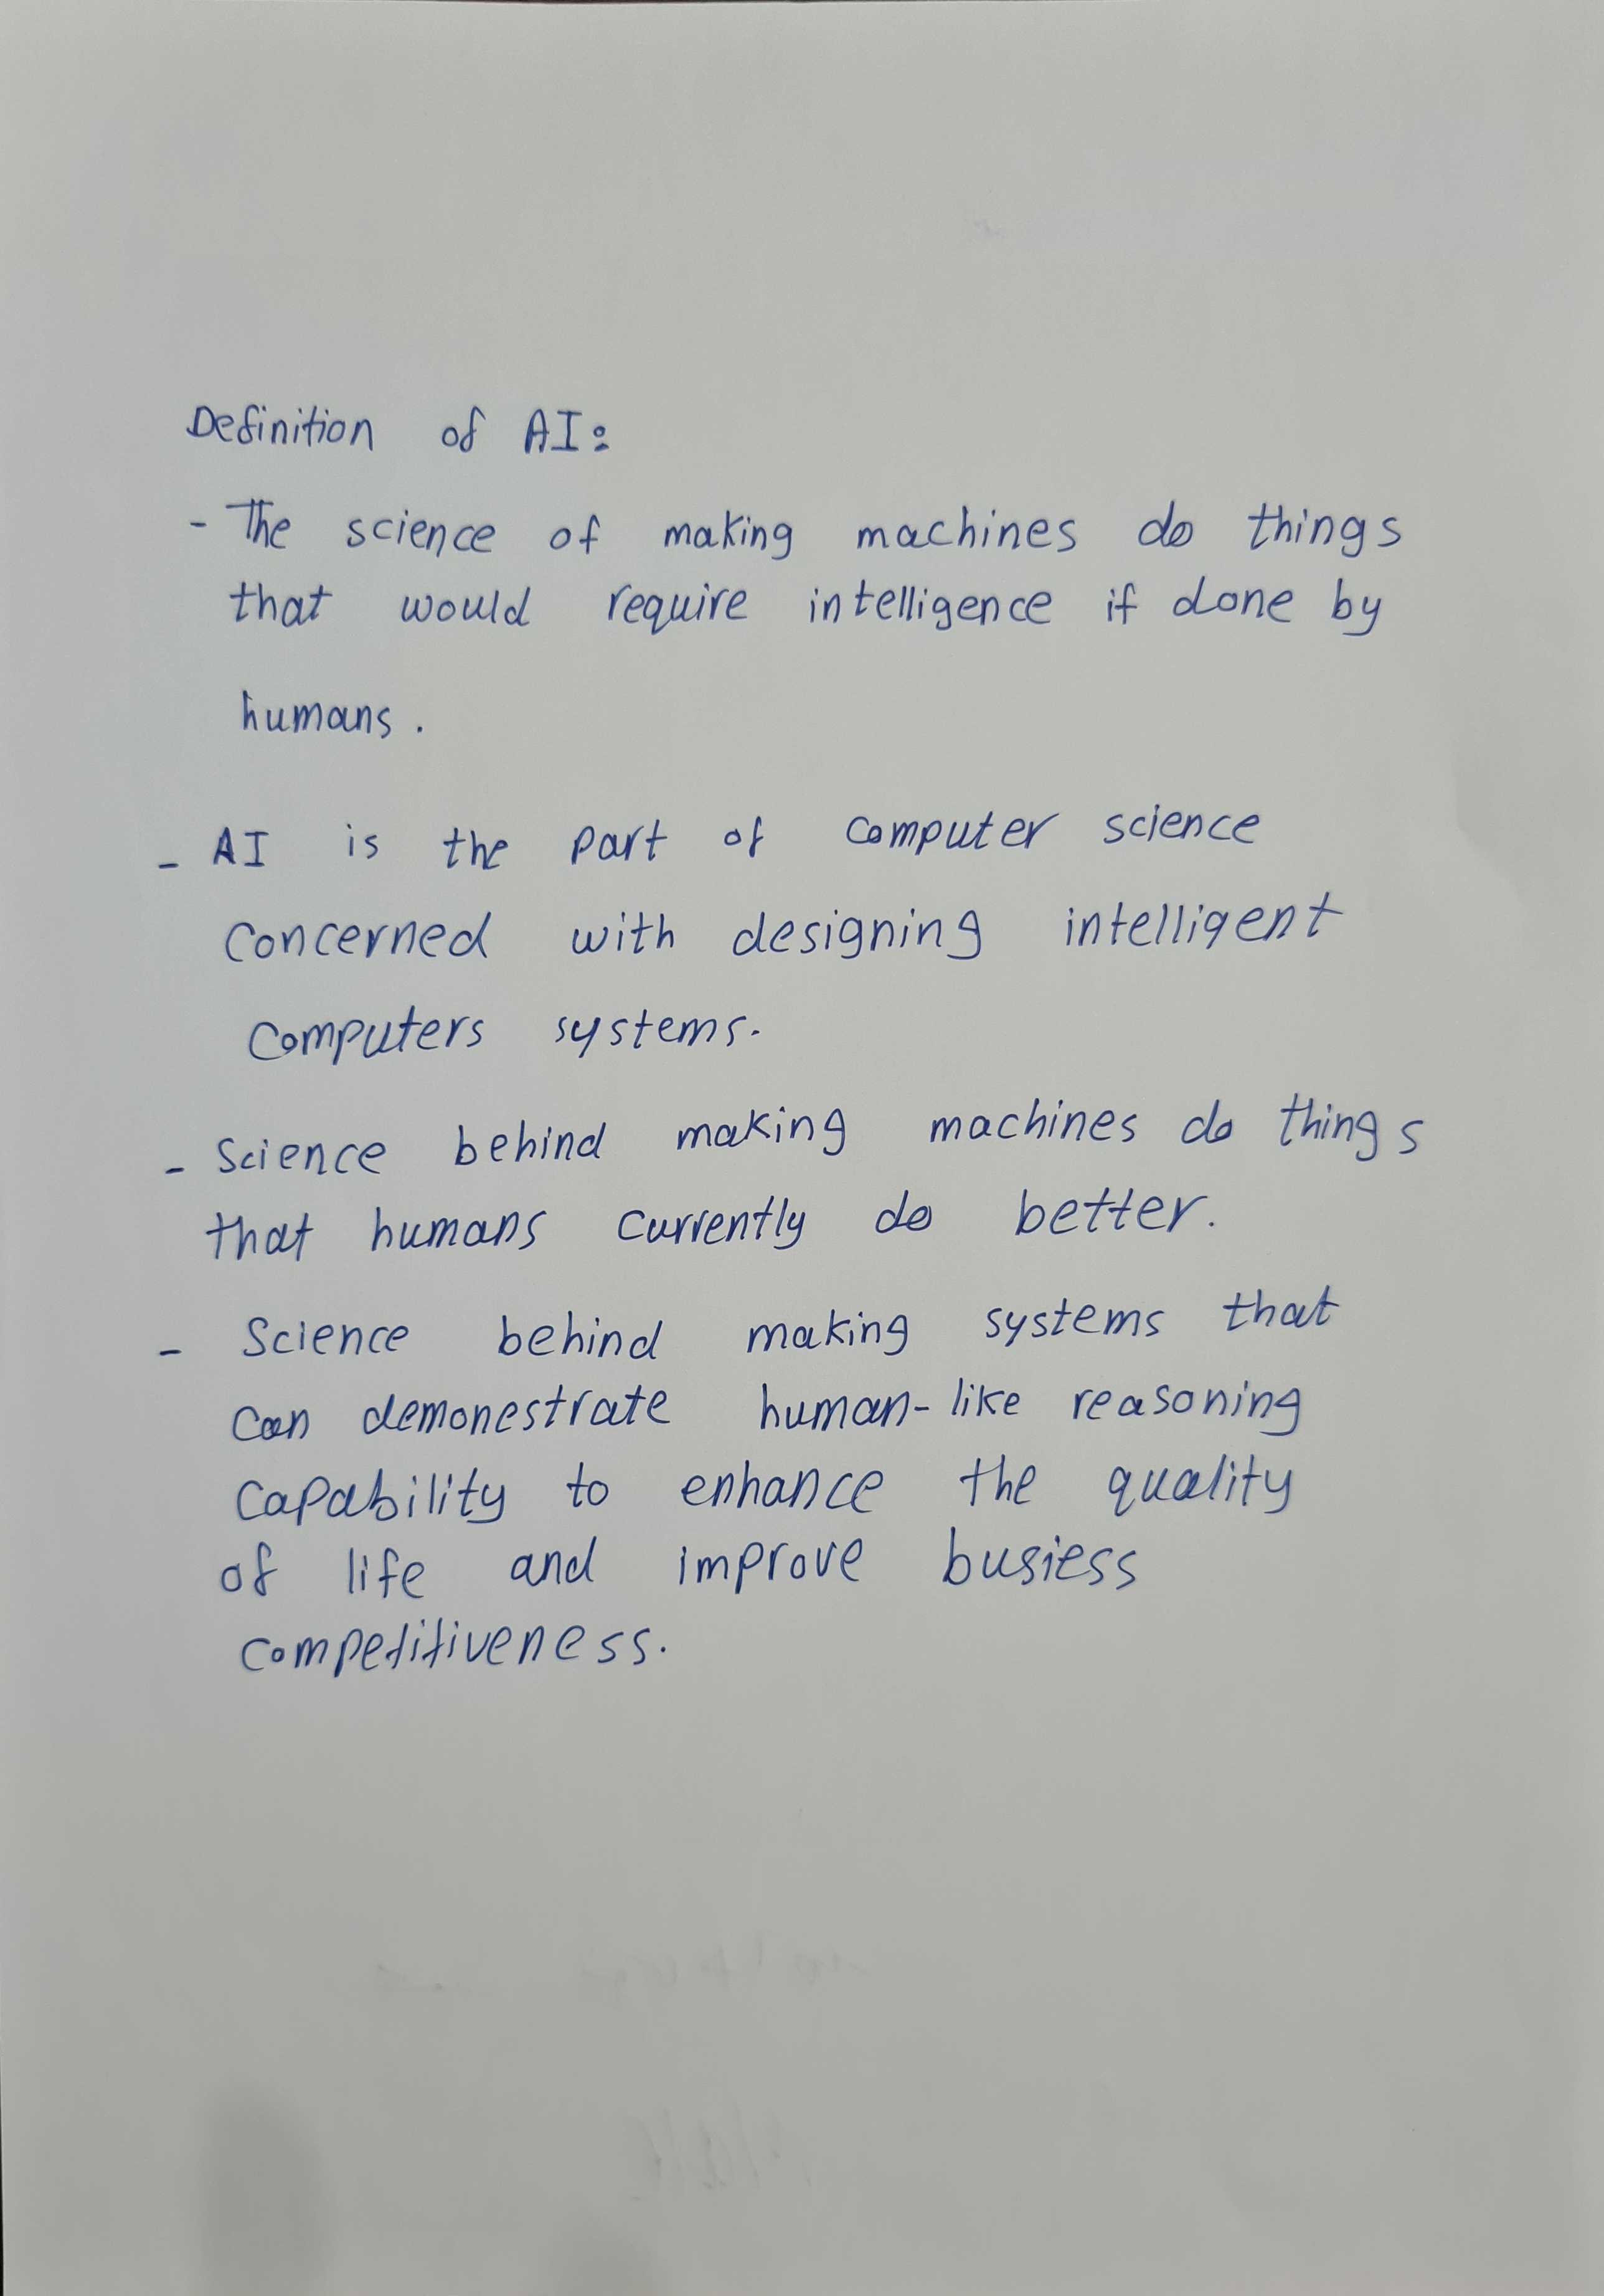 Definition of AI:
- The science of making machines do things
that would require intelligence if done by
humans.
- AI is the part of computer science
concerned with designing intelligent
computers systems.
- Science behind making machines do things
that humans currently do better.
- Science behind making systems that
can demonestrate human-like reasoning
capability to enhance the quality
of life and improve busiess
competitiveness.